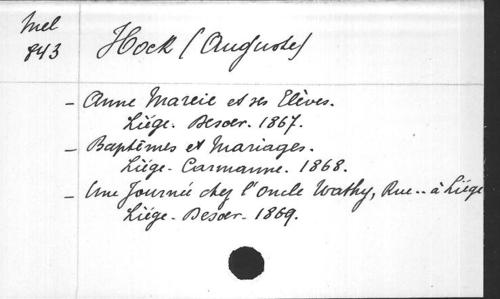 Mel
843
Hock (Auguste)
- Anne Mareie et ses Elèves.
Liége - Desoer. 1867.
- Baptêmes et Mariages.
Liége - Carmanne. 1868.
- Une Journée chez l'oncle Wathy, Rue .. à Liége
Liége - Desoer - 1869.